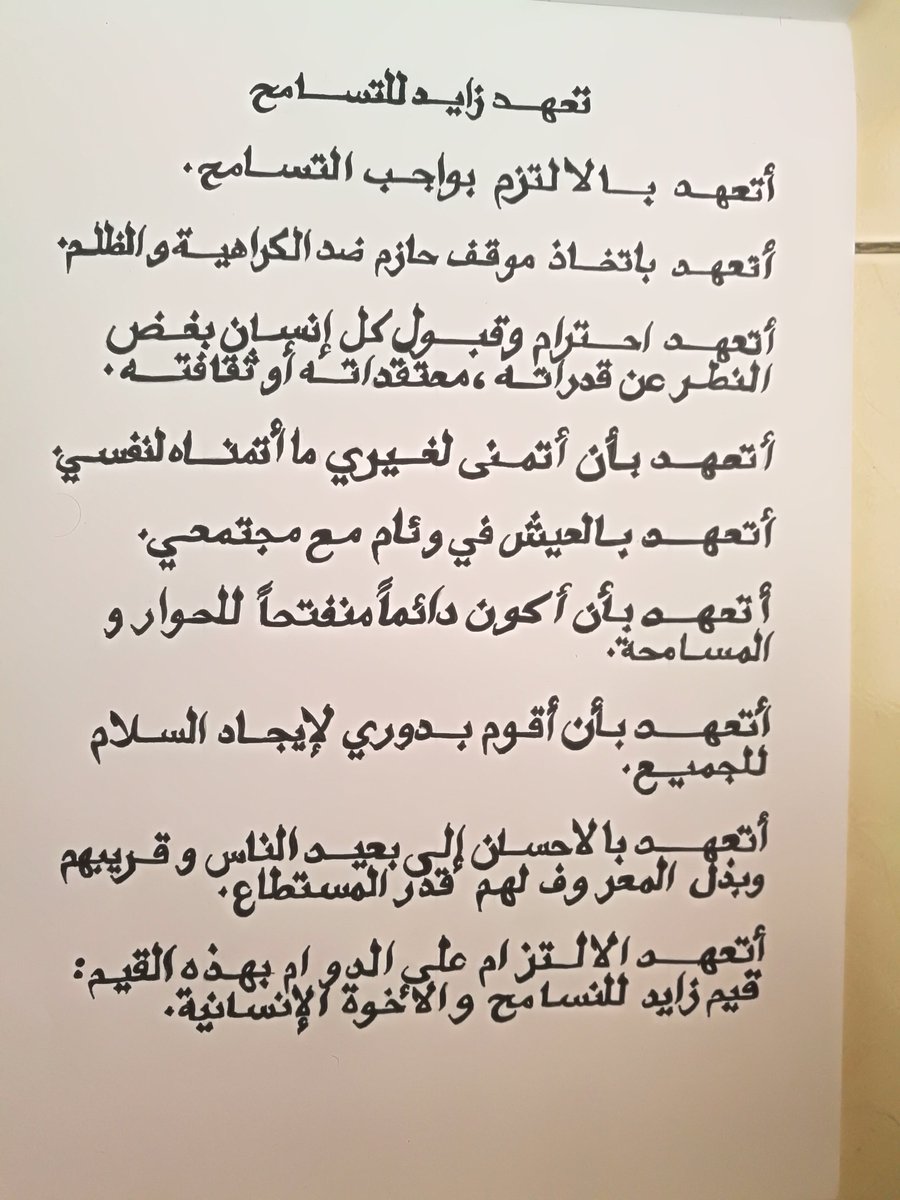 تعهد زايد للتسامح
أتعهد بالالتزم بواجب التسامح.
أتعهد باتخاذ موقف حازم ضد الكراهية والظلم.
أتعهد احترام وقبول كل إنسان بغض
النطر عن قدراته، معتقداته أو ثقافته.
أتعهد بأن أتمنى لغيري ما أتمناه لنفسي.
أتعهد بالعيش في وئام مع مجتمعي.
أتعهد بأن أكون دائماً منفتحاً للحوار و
المسامحة.
أتعهد بأن أقوم بدوري لإيجاد السلام
للجميع.
أتعهد بالاحسان إلى بعيد الناس و قريبهم
وبذل المعروف لهم قدر المستطاع.
أتعهد الالتزام على الدوام بهذه القيم:
قيم زايد للنسامح والأخوة الإنسانية.